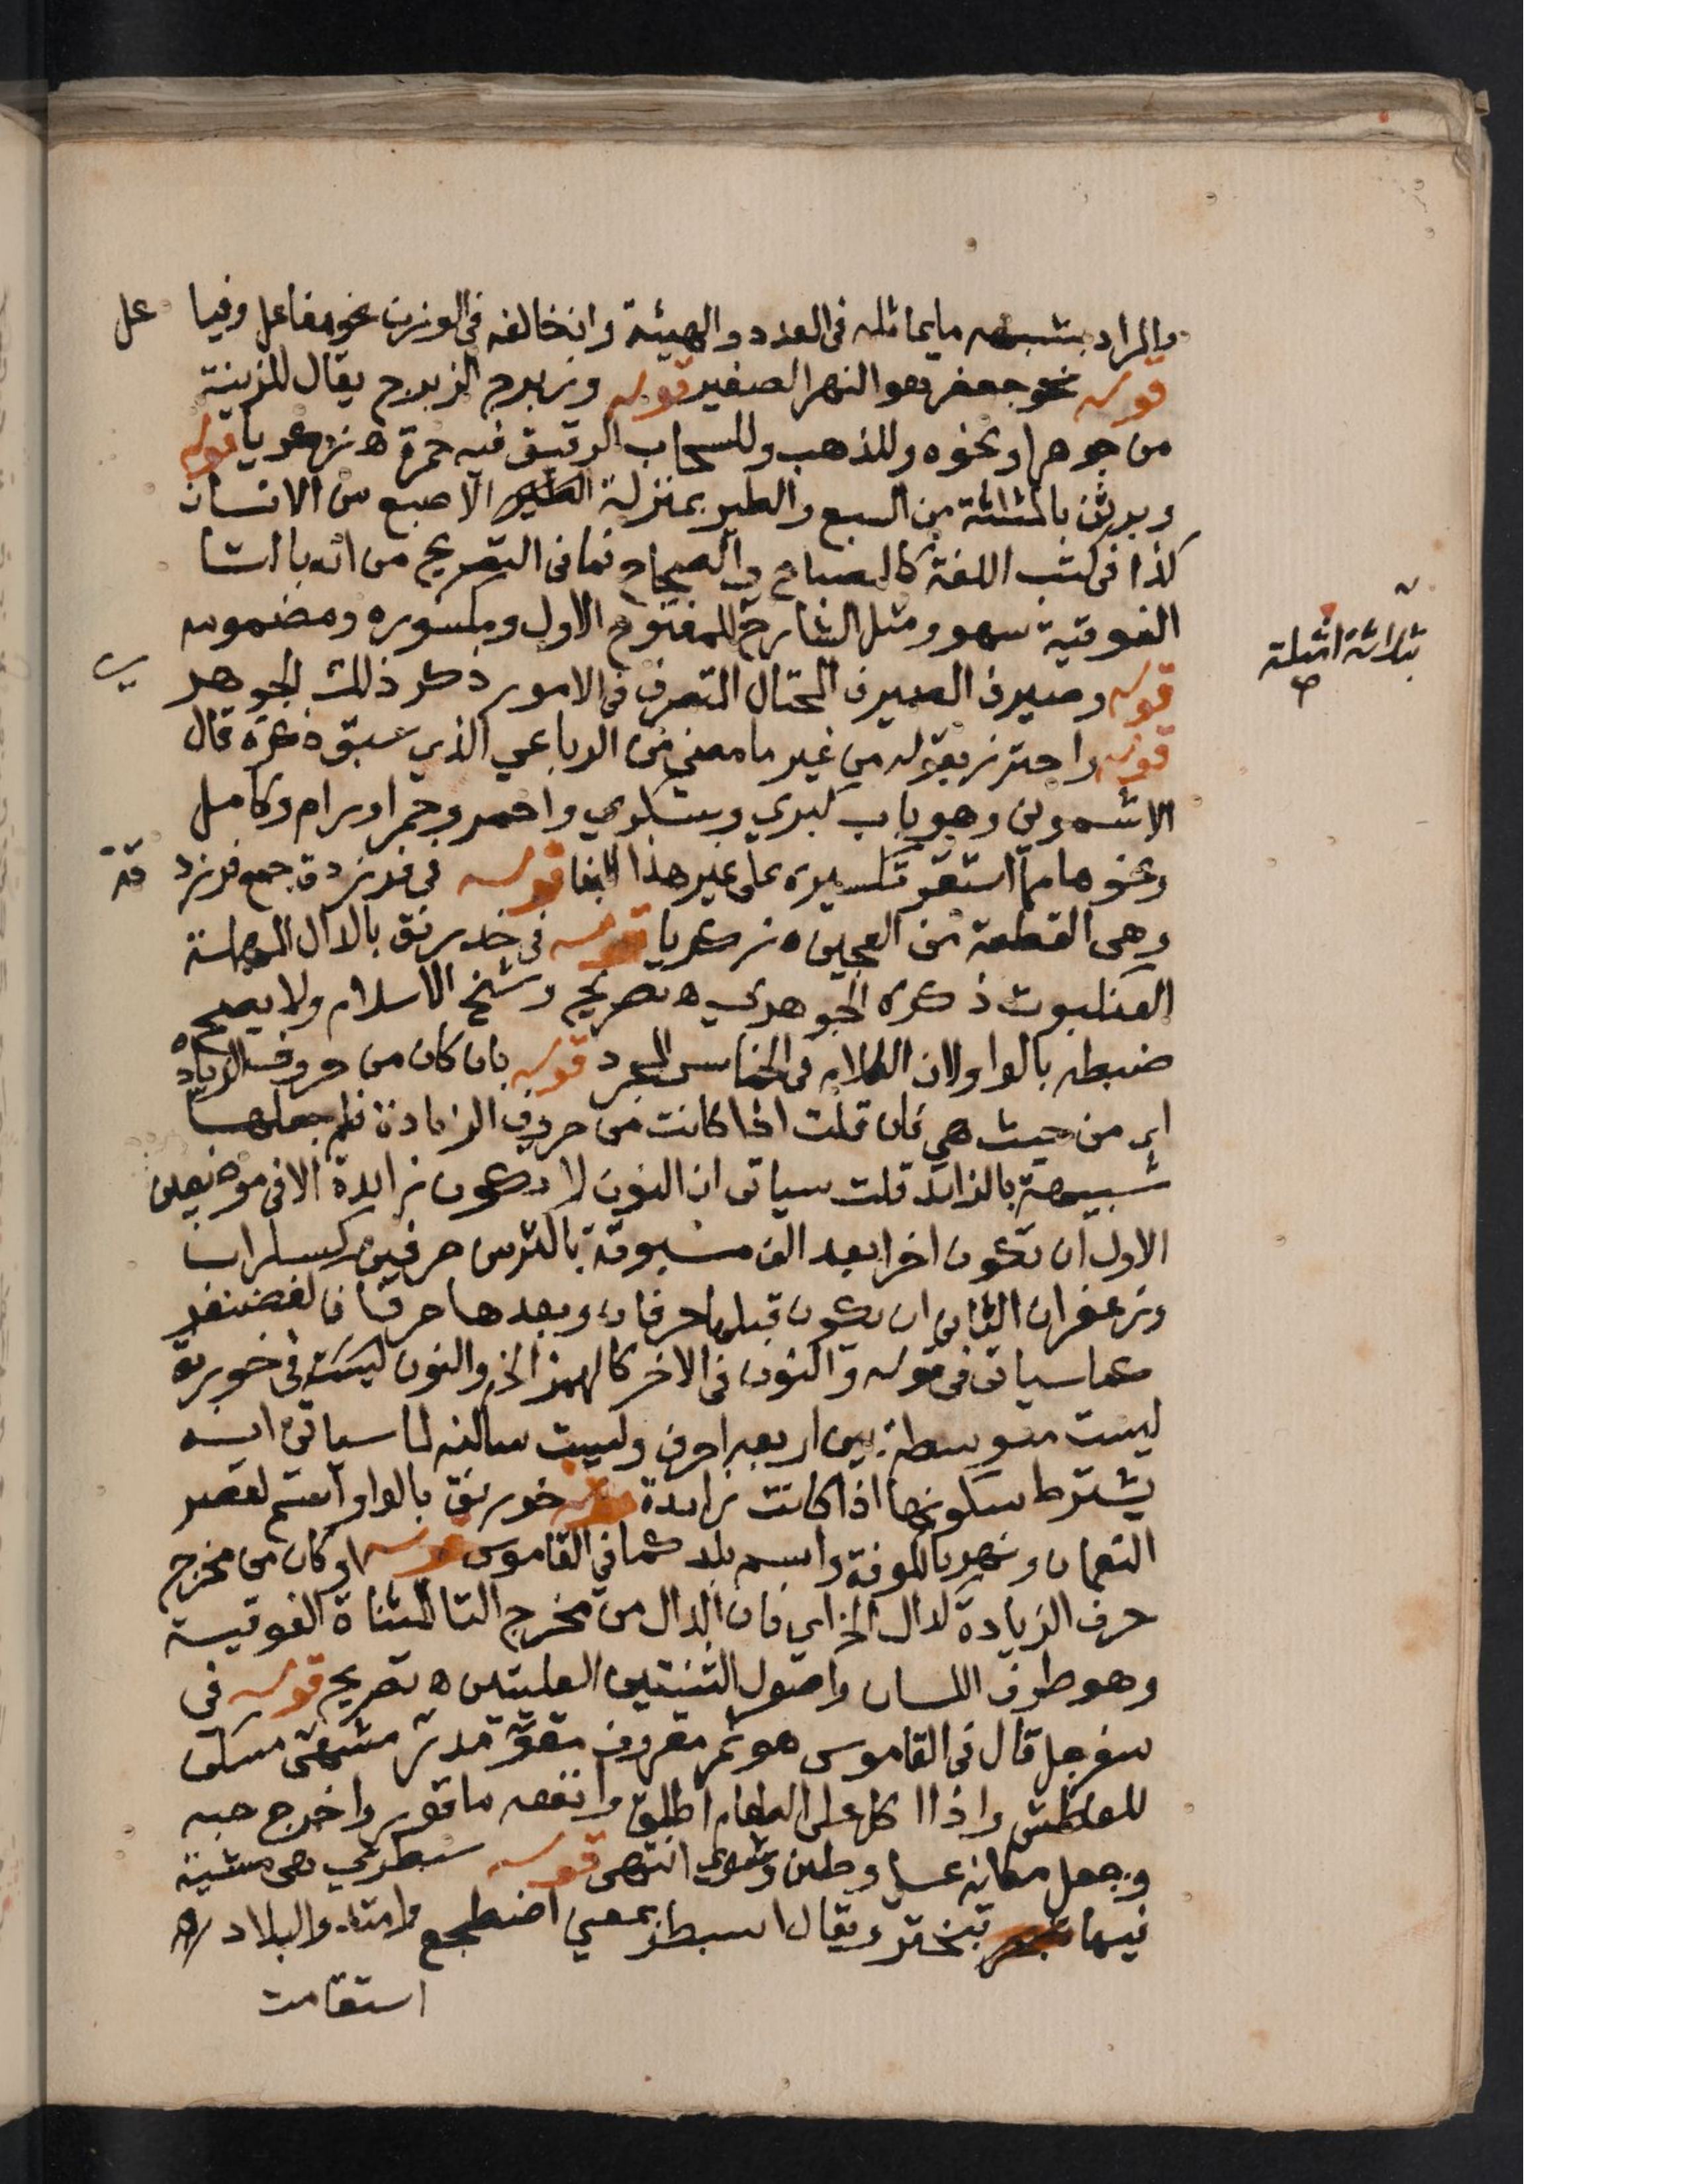 والمراد بشبهه ما يماثله فى العدد والهيئة وان خالفه فى الوزن نحو مفاعل وفيا عل
قوله نحو جعفر هو النهر الصغير قوله وزبرج الزبرج يقال للزينة
من جوهر او نحوه وللذهب وللسحاب الرقيق فيه حمرة ه زكريا قوله
وبرثن بالمثلثة من السبع والطير بمنزلة الاصبع من الانسان
كذا فى كتب اللغة كالمصباح والصحاح فما فى التصريح من انه بالتا
الفوقية سهو ومثل الشارح للمفتوح الاول ومكسوره ومضمومه
ثلاثة امثلة
صح
قوله وصيرف الصيرف المحتال المتصرف فى الامور ذكر ذلك الجوهر ي
قوله واحترز بقوله من غير ما مضى من الرباعي الذي سبق ذكره قال
الاشموني وهو باب كبرى وسكرى واحمر وحمرا ورام وكامل
ونحوها مما استقر تكسيره على غير هذا البنا قوله فى فرزدق جمع فرزد قة
وهى القطعة من العجين ه زكريا قوله فى خدرنق بالدال المهملة
العنكبوت ذكره الجوهري ه تصريح وشيخ الاسلام ولا يصح
ضبطه بالواو لان الكلام فى الخماسى المجرد قوله بان كان من حروف الزيادة
اي من حيث هي فان قلت اذا كانت من حروف الزيادة فلم جعلها
شبيهة بالزائد قلت سياتى ان النون لا تكون زايدة الا فى موضعين
الاول ان تكون اخرا بعد الف مسبوقة باكثر من حرفين كسكران
وزعفران الثانى ان يكون قبلها حرفان وبعدها حرفان كغضنفر
كما سياتى فى قوله والنون فى الاخر كالهمز الخ والنون ليست فى خورنق
ليست متوسطة بين اربعة احرف وليست ساكنه لما سياتى انه
يشترط سكونها اذا كانت زايدة قوله خورنق بالواو اسم لقصر
النعمان ونهر بالكوفة واسم بلد كما فى القاموس قوله او كان من مخرج
حرف الزيادة كدال الخ اي فان الدال من مخرج التا المثناة الفوقية
وهو طرف اللسان واصول الثنيتين العليتين ه تصريح قوله فى
سفرجل قال فى القاموس هو ثمر معروف مقو مدر مشهى مسكن
للعطش واذا اكل على الطعام اطلق وانفعه ما قور واخرج حبه
وجعل مكانه عسل وطين وشوى انتهى قوله سبطرى هى مشية
فيها تبختر ويقال اسبطر بمعنى اضطجع وامتد والبلاد
استقامت